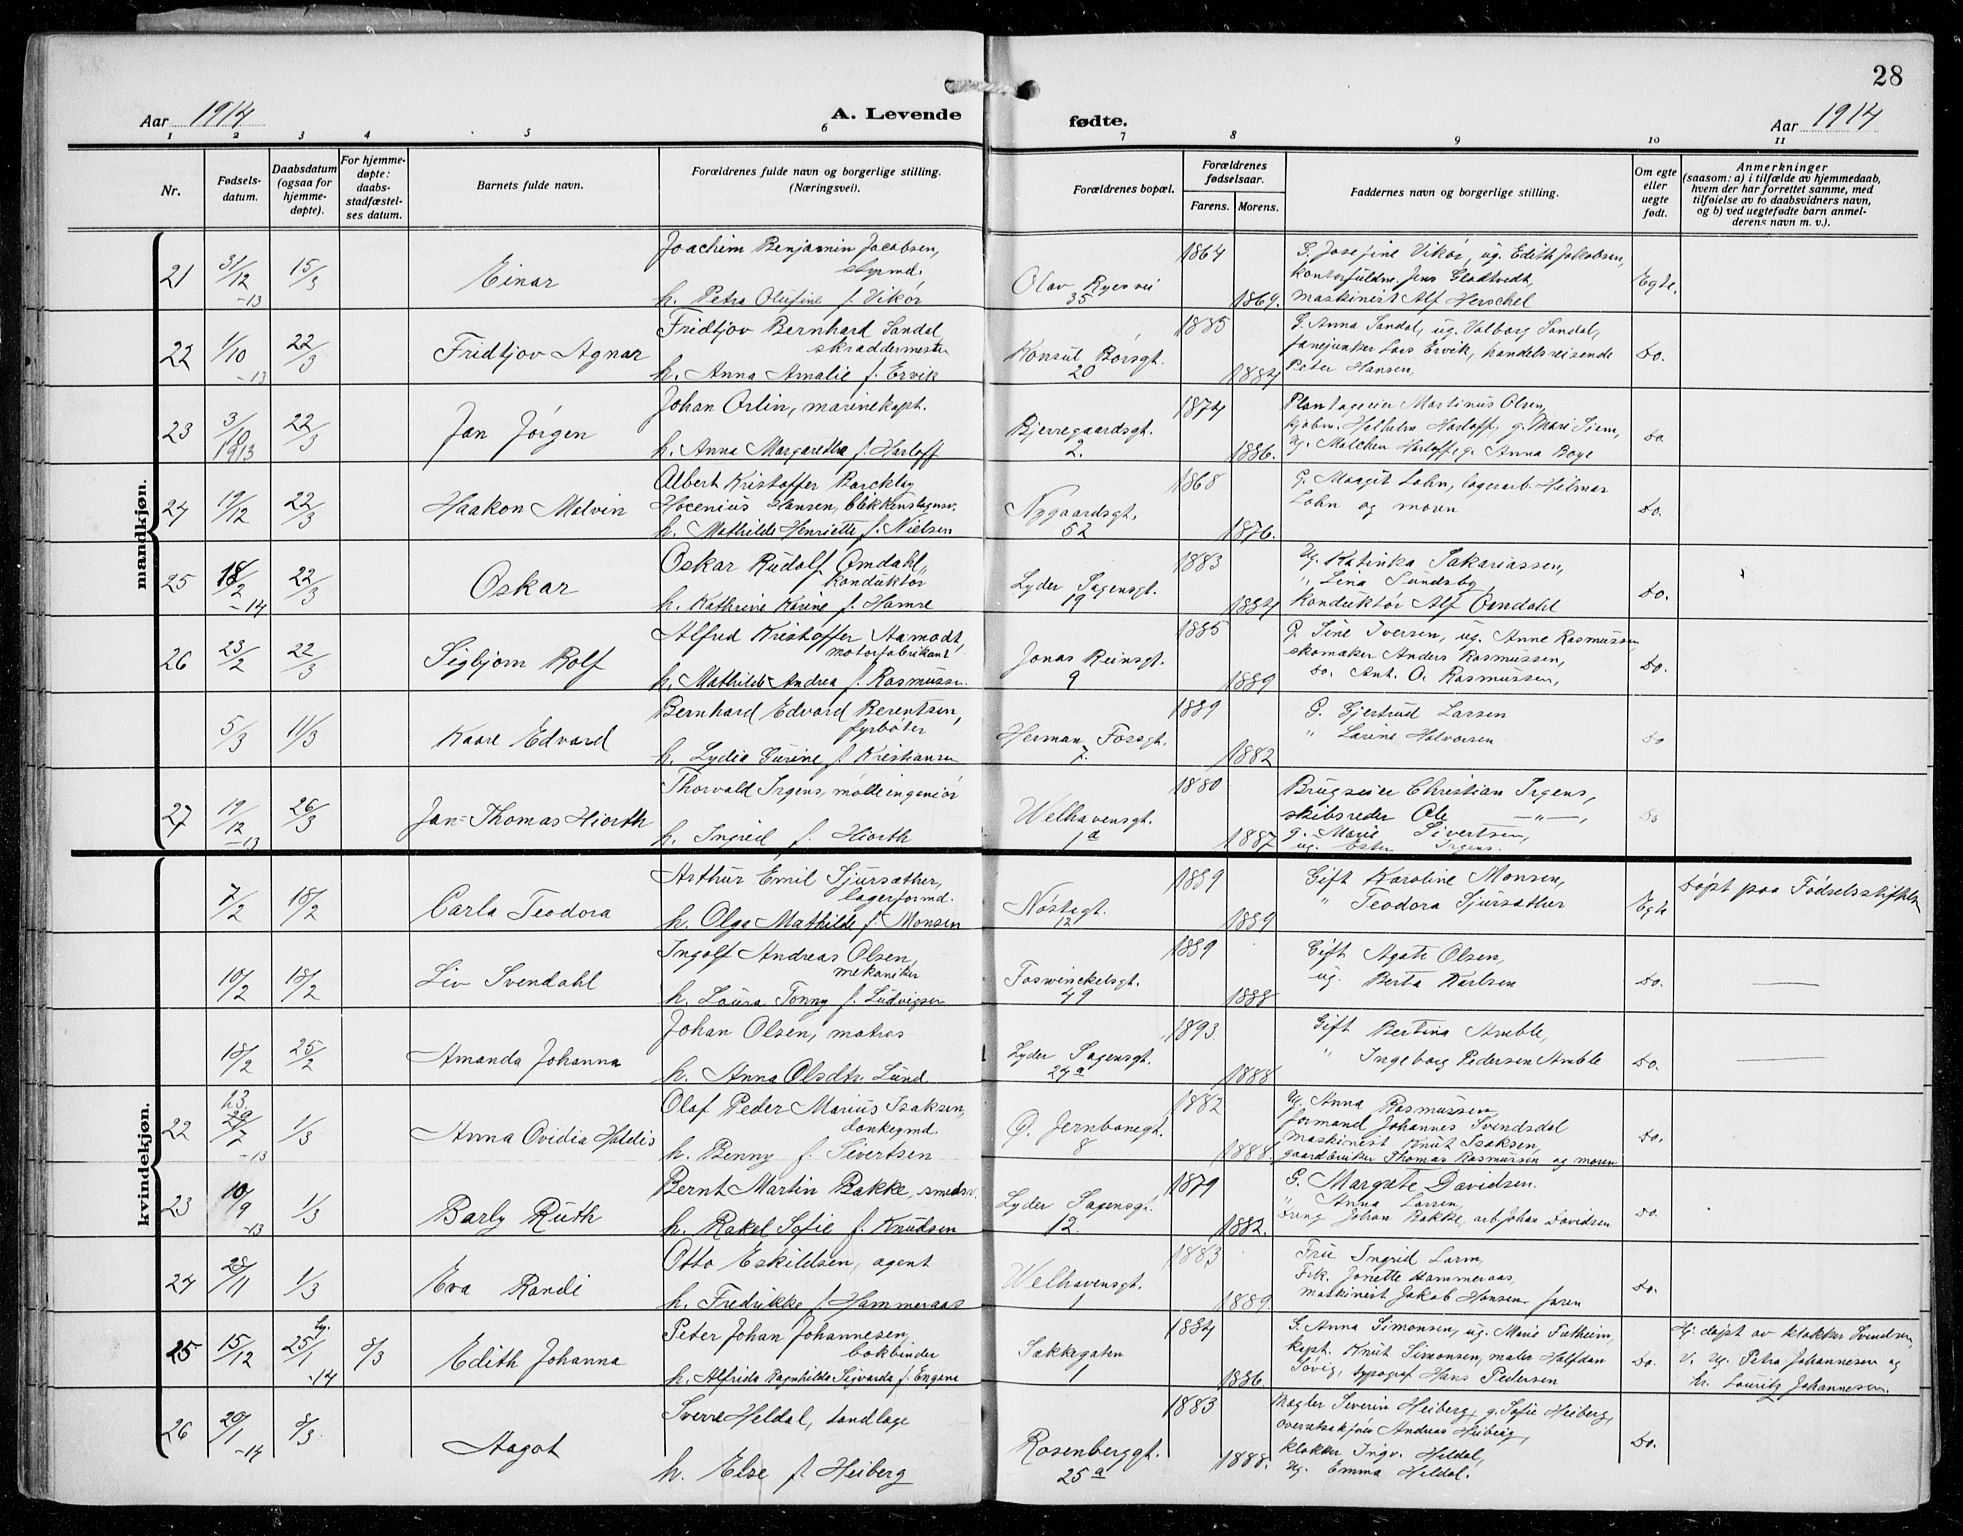 28
Aar 1914
A. Levende
fødte.
Aar 1914
1 2 3 4 5 6 7 8 9 10 11
Nr.
Fødsels-
datum.
Daabsdatum
(ogsaa for
hjemme-
døpte).
For hjemme-
døpte:
daabs-
stadfæstel-
ses datum.
Barnets fulde navn.
Forældrenes fulde navn og borgerlige stilling.
(Næringsvei).
Forældrenes bopæl.
Forældrenes
fødselsaar.
Farens. Morens.
Faddernes navn og borgerlige stilling.
Om egte
eller
uegte
født.
Anmerkninger
(saasom: a) i tilfælde av hjemmedaab,
hvem der har forrettet samme, med
tilføielse av to daabsvidners navn,
og b) ved uegtefødte barn anmel-
derens navn m. v.).
mandkjøn.
21 31/12 -13 15/3 Einar
Joachim Benjamin Jacobsen,
styrmd.
h. Petra Olufine f. Vikør
Olav Ryesvei
35
1864 1869.
G. Josefine Vikør, ug. Edith Jakobsen,
kontorfuldm. Jens Gladtvedt,
maskinist Alf Herschel
Egte.
22 1/10 -13 22/3 Fridtjov Agnar
Fridtjov Bernhard Sandal
skræddermester
h. Anna Amalie f. Ervik
Konsul Børsgt.
20
1885 1884
G. Anna Sandal, ug. Valborg Sandal,
fanejunker Lars Ervik, handelsreisende
Peter Hansen,
Do.
23 3/10 1913 22/3 Jan Jørgen
Johan Orlin, marinekapt.
h. Anna Margaretha f. Harloff
Bjerregaardsgt.
2.
1874 1886.
Plantageeier Martinus Olsen,
kjøbm. Harloff, g. Mari
Ug. Malchen Harloff, g. Anna Boye
Do
24 19/12 22/3 Haakon Melvin
Albert Kristoffer Barckley
Hocenius Hansen, blikkenslagersv.
h. Mathilde Henriette f. Nielsen
Nygaardsgt.
52
1868 1876.
G. Maggit Lohn, lagerarb. Hilmar
Lohn og moren
Do.
25 18/2 -14 22/3 Oskar
Oskar Rudolf Omdahl,
konduktør
h. Kathrine Karine f. Hamre
Lyder Sagensgt.
19
1883 1884
Ug. Katinka Sakariassen,
" Lina Sundsby
konduktør Alf Omdahl
Do.
26 23/2 22/3 Sigbjørn Rolf
Alfred Kristoffer Aamodt,
motorfabrikant
h. Mathilde Andrea f. Rasmussen.
Jonas Reinsgt.
9
1885 1889
G. Sine Iversen, ug. Anne Rasmussen
skomaker Anders Rasmussen,
do. Ant. O. Rasmussen,
Do.
5/3 11/3 Kaare Edvard
Bernhard Edvard Berentsen,
fyrbøter
h. Lydia Gurine f. Kristiansen
Herman Fossgt.
7.
1889 1882
G. Gjertrud Larsen
" Larine Halvorsen
Do
27 19/12 -13 26/3 Jan Thomas Hiorth
Thorvald Irgens, mølleingeniør
h. Ingrid f. Hiorth
Welhavensgt.
1a
1880 1887
Brugseier Christian Irgens,
skibsreder Ole —"—,
g. Marie Sivertsen,
ug. Ester Irgens.
Do
kvindekjøn.
7/2 18/2 Carla Teodora
Arthur Emil Sjursæther,
lagerformd.
h. Olga Mathilde f. Monsen
Nøstegt.
12
1889 1889
Gift Karoline Monsen,
" Teodora Sjursæther
Egte
Døpt paa Fødselsstiftelsen
10/2 18/2 Liv Svendahl
Ingolf Andreas Olsen,
mekaniker
h. Laura Tonny f. Ludvigsen
Foswinckelsgt.
49
1889 1888
Gift Agate Olsen,
ug. Berta Karlsen
Do. —
18/2 25/2 Amanda Johanna
Johan Olsen, matros
h. Anna Olsdtr. Lund
Lyder Sagensgt.
24a
1893 1888
Gift Bertina Amble,
" Ingeborg Pedersen Amble
Do. —
22 29/7 -13 1/3 Anna Ovidia Haldis
Olaf Peder Marius Isaksen,
donkeymd.
h. Benny f. Sivertsen
Ø. Jernbanegt.
8
1882 1888.
Ug. Anna Rasmussen,
formand Johannes Svendsdal
maskinist Knut Isaksen,
gaardbruker Thomas Rasmussen og moren
Do.
23 10/9 -13 1/3 Barly Ruth
Bernt Martin Bakke, smedsv.
h. Rakel Sofie f. Knudsen
Lyder Sagensgt.
12.
1879 1882.
G. Margrete Davidsen.
" Anna Larsen,
Johan Bakke, arb. Johan Davidsen
Do.
24 28/11 1/3 Eva Randi
Otto Eskildsen, agent
h. Fredrikke f. Hammeraas
Welhavensgt.
1
1883 1889.
Fru Ingrid Larm
Frk. Jonette Hammeraas,
maskinist Jakob Hansen Jaren
Do.
25 15/12 25/1 -14 8/3 Edith Johanna
Peter Johan Johannesen,
bokbinder
h. Alfrida Ragnhilda Sigvarda f. Engene
Sækkegaten
1
1884 1886.
G. Anna Simonsen, ug. Marie Fatheim,
kapt. Knut Simonsen, maler Halfdan
Søvig, typograf Hans Pedersen
Do.
Hj. døpt av klokker Svendsen,
V. Ug. Petra Johannesen og
hr. Lauritz Johannesen.
26 20/1 -14 8/3 Aagot
Sverre Heldal, tandlæge
h. Else f. Heiberg
Rosenberggt.
25a
1883 1888.
Mægler Severin Heiberg, g. Sofie Heiberg,
overretssakfører Andreas Heiberg,
klokker Ingv. Heldal,
Ug. Emma Heldal.
Do.